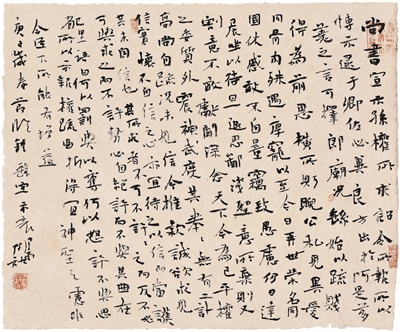 尚書宣示孫權所求詔令所報所以
博示逮于卿佐必冀良方出於阿是芻
蕘之言可擇郎廟況繇始以疏賤
得為前恩橫所盻睨公私見異愛
同骨肉殊遇厚寵以至今日再世榮名同
國休慼敢不自量竊致愚慮仍日達
晨坐以待旦退思鄙淺聖意所棄則又
割意不敢獻聞深念天下今為已平權
之委質外震神武度其拳拳無有二計
高尚自疏況未見信今推款誠欲求見
信實懷不自信之心亦宜待之以信而當護
其未自信也其所求者不可不許許之而反不必
可與求之而不許勢必自絕許而不與其曲在
己里語曰何以罰與以奪何以怒許不與思
省所示報權疏曲折得宜宜神聖之慮非
今臣下所能有增益
歲春節臨鍾繇宣示表